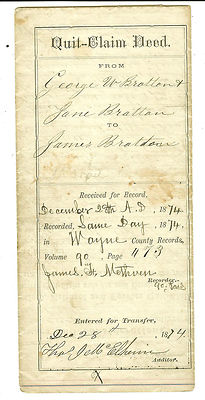 Quit-Claim Deed.
FROM
George W Bratton &
Jane Bratton
TO
James Bratton
Received for Record,
December 28th A.D. 1874.
Recorded, Same Day 1874,
in Wayne County Records,
Volume 90 Page 473
James H. Methven
Recorder.
Entered for Transfer,
Dec 28 1874
Auditor.